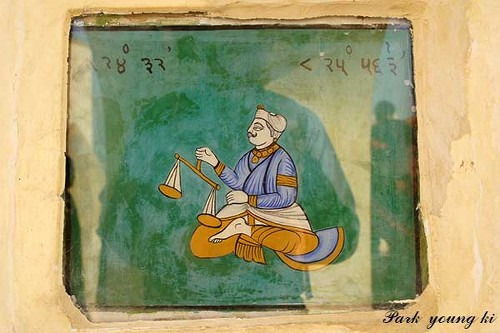 < २४° ३२'
< २५° ५६३'
Park young ki